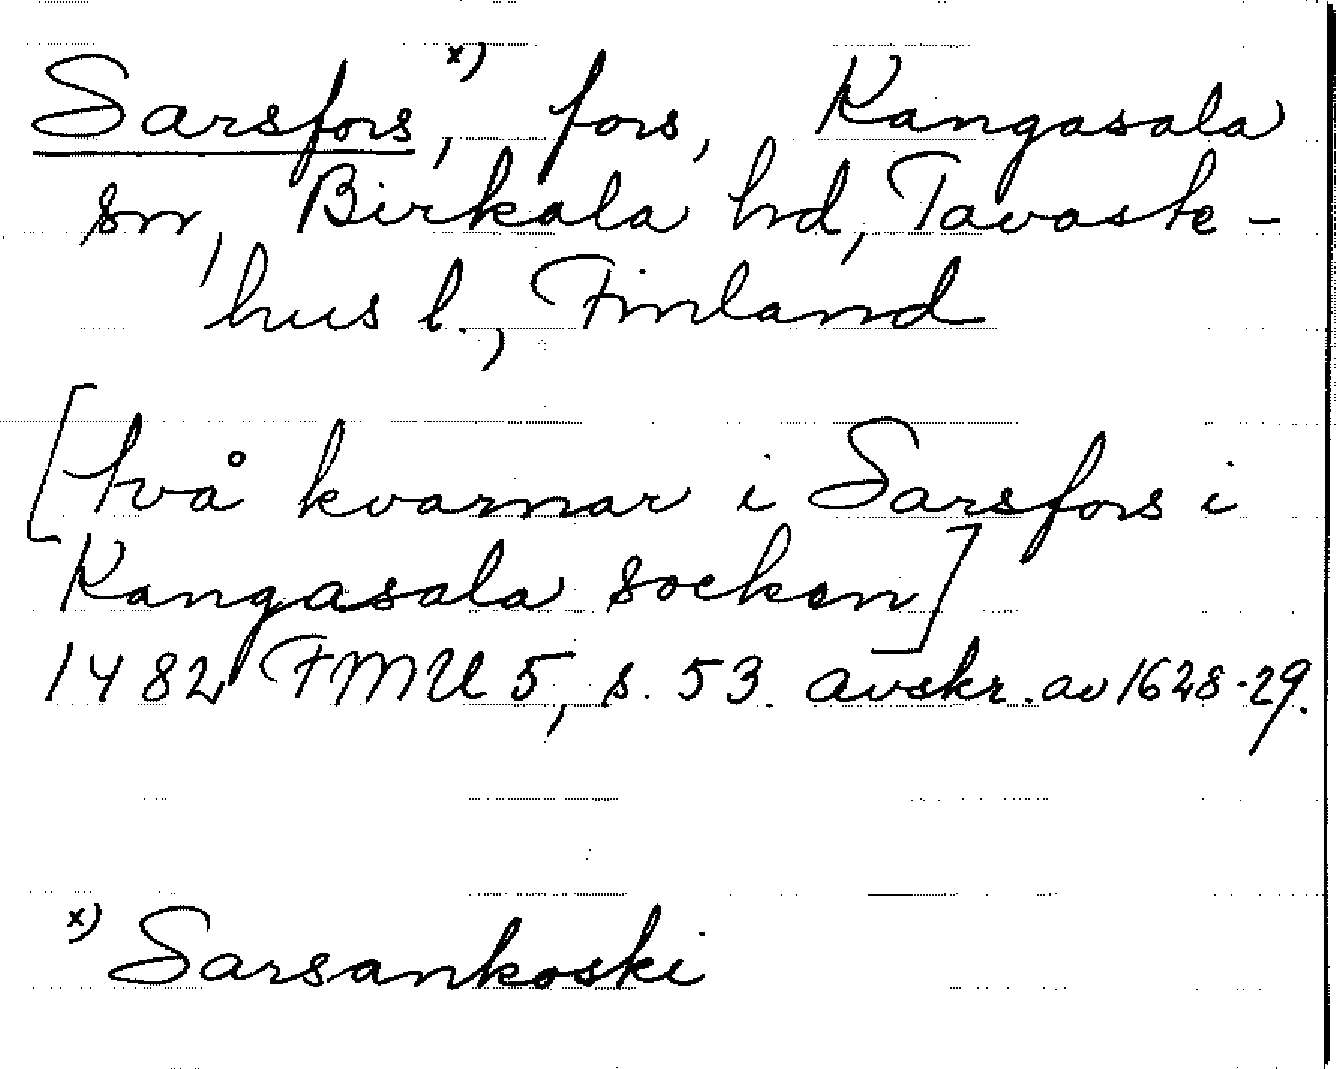 Sarsfors x), fors, Kangasala
sn, Birkala hd, Tavaste-
hus l., Finland
[två kvarnar i Sarsfors i
Kangasala socken]
1482 FMU 5, s. 53 avskr. av 1628-29.
x) Sarsankoski